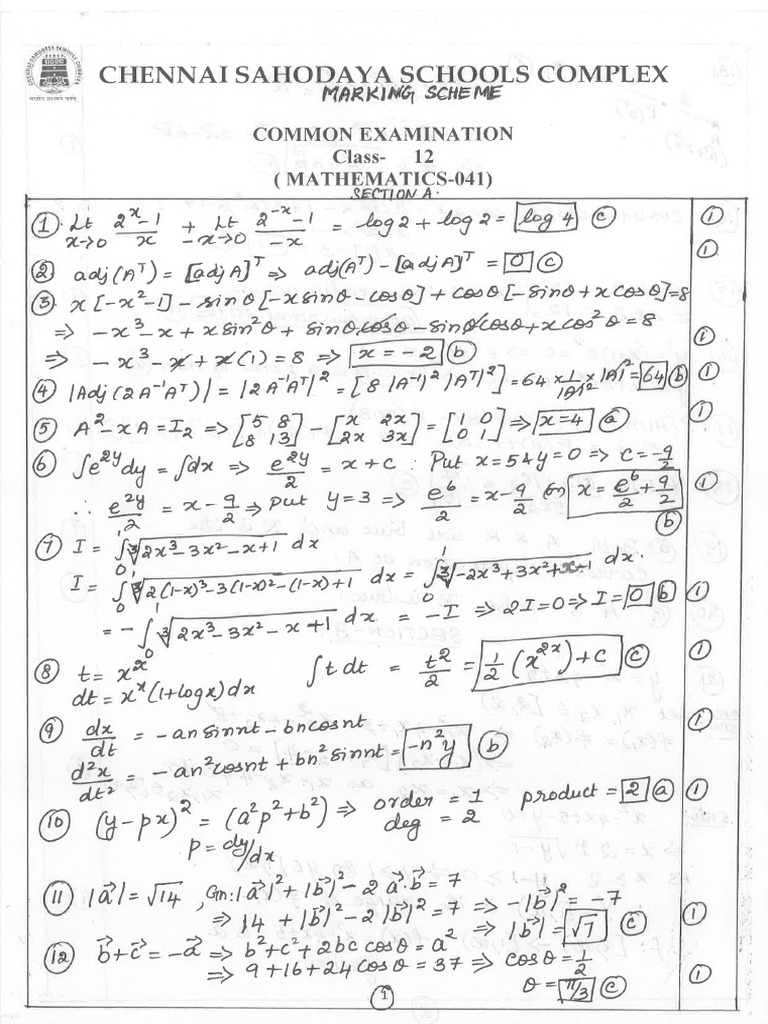 CHENNAI SAHODAYA SCHOOLS COMPLEX
MARKING SCHEME
COMMON EXAMINATION
Class- 12
( MATHEMATICS-041)
SECTION A.
① Lt x→0 (2^x - 1)/x + Lt -x→0 (2^-x - 1)/-x = log 2 + log 2 = log 4 ⓒ ①
② adj(A^T) = [adj A]^T ⇒ adj(A^T) - [adj A]^T = 0 ⓒ ①
③ x[-x²-1] - sinθ[-x sinθ - cosθ] + cosθ[-sinθ + x cosθ] = 8
⇒ -x³ - x + x sin²θ + sinθ cosθ - sinθ cosθ + x cos²θ = 8
⇒ -x³ - x + x(1) = 8 ⇒ x = -2 ⓑ ①
④ |Adj(2A⁻¹A^T)| = |2A⁻¹A^T|² = [8|A⁻¹|²|A^T|²] = 64 × 1/|A|² × |A|² = 64 ⓑ ①
⑤ A² - xA = I₂ ⇒ [5 8; 8 13] - [x 2x; 2x 3x] = [1 0; 0 1] ⇒ x = 4 ⓐ ①
⑥ ∫e^2y dy = ∫dx ⇒ e^2y/2 = x + c : Put x = 5 & y = 0 ⇒ c = -9/2
∴ e^2y/2 = x - 9/2 ⇒ Put y = 3 ⇒ e^6/2 = x - 9/2 (or) x = e^6/2 + 9/2 ①
ⓑ
⑦ I = ∫₀¹ ∛(2x³ - 3x² - x + 1) dx
I = ∫₀¹ ∛(2(1-x)³ - 3(1-x)² - (1-x) + 1) dx = ∫₀¹ ∛(-2x³ + 3x² + x - 1) dx.
= -∫₀¹ ∛(2x³ - 3x² - x + 1) dx = -I ⇒ 2I = 0 ⇒ I = 0 ⓑ ①
⑧ t = x^x ∫t dt = t²/2 = 1/2 (x^2x) + c ⓒ ①
dt = x^x (1 + log x) dx
⑨ dx/dt = -an sin nt - bn cos nt ①
d²x/dt² = -an² cos nt + bn² sin nt = -n²y ⓑ
⑩ (y - px)² = (a²p² + b²) ⇒ order = 1 product = 2 ⓐ ①
deg = 2
p = dy/dx
⑪ |a⃗| = √14, Gn: |a⃗|² + |b⃗|² - 2 a⃗.b⃗ = 7
⇒ 14 + |b⃗|² - 2|b⃗|² = 7 ⇒ -|b⃗|² = -7
⇒ |b⃗| = √7 ⓒ ①
⑫ b⃗ + c⃗ = -a⃗ ⇒ b² + c² + 2bc cosθ = a²
⇒ 9 + 16 + 24 cosθ = 37 ⇒ cosθ = 1/2
θ = π/3 ⓒ ①
①